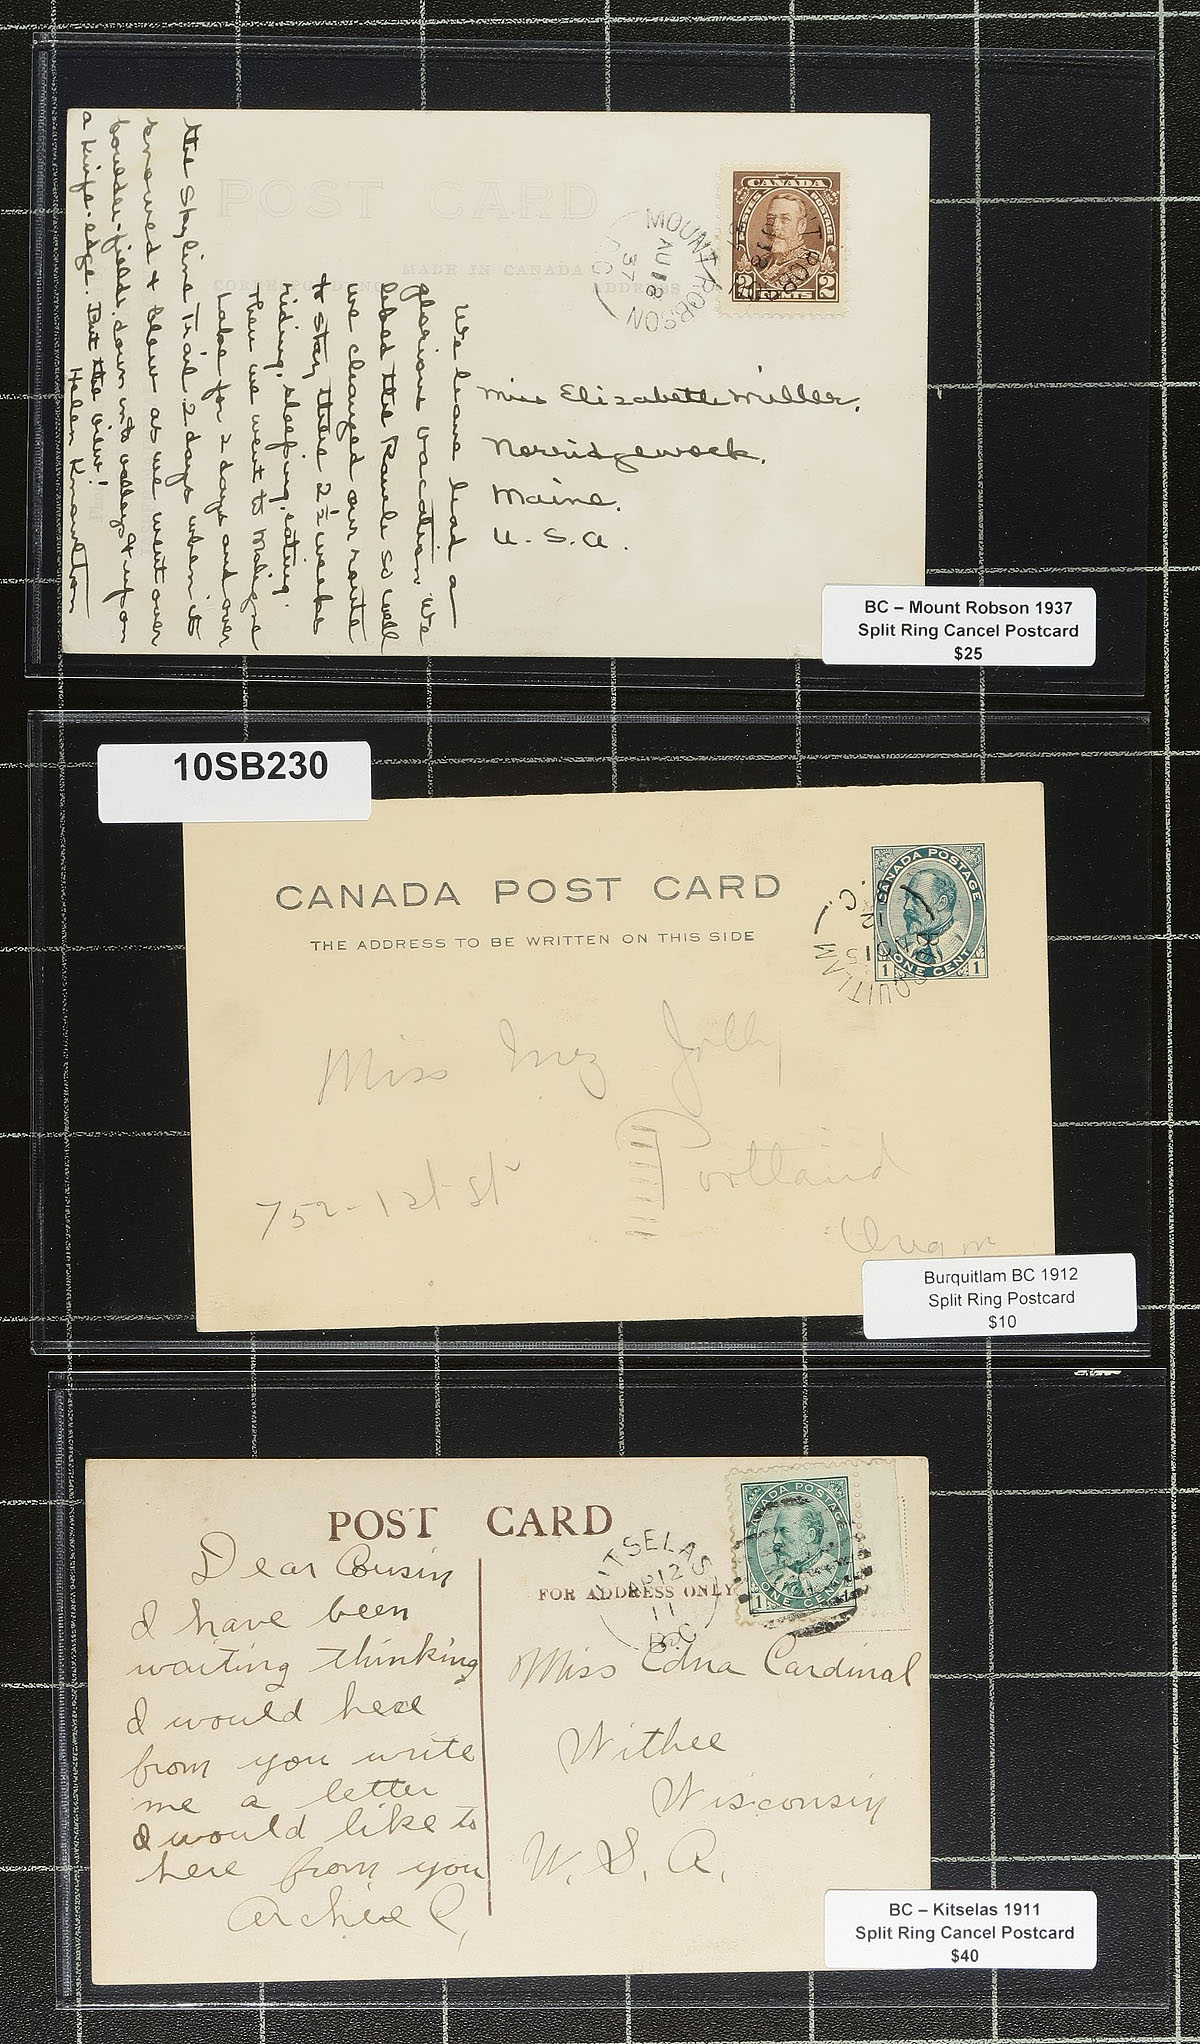 POST CARD
MADE IN CANADA
CORRESPONDENCE
ADDRESS
CANADA
POSTES POSTAGE
2 CENTS 2
MOUNT ROBSON
AU 18
37
B C
We leave lead a
glorious vacation. We
liked the Ranch so well
we changed our route
to stay there 2½ weeks
riding, sleeping, eating.
Then we went to Maligne
Lake for 2 days and over
the Skyline Trail 2 days when it
snowed & blew as we went over
boulder-fields, down into valleys & up on
a knife-edge. But the view!
Helen Knowlton
Miss Elizabeth Miller,
Norridgewock,
Maine.
U.S.A.
BC – Mount Robson 1937
Split Ring Cancel Postcard
$25
10SB230
CANADA POST CARD
THE ADDRESS TO BE WRITTEN ON THIS SIDE
CANADA POSTAGE
1 ONE CENT 1
QUITLAM
15
C.
Miss Inez Jolly
752 - 1st St
Portland
Oregon
Burquitlam BC 1912
Split Ring Postcard
$10
POST CARD
FOR ADDRESS ONLY
CANADA POSTAGE
1 ONE CENT
ITSELAS
AP 12
11
B.C
Dear Cousin
I have been
waiting thinking
I would here
from you write
me a letter
I would like to
here from you
Archie C,
Miss Edna Cardinal
Withee
Wisconsin
U. S. A.
BC – Kitselas 1911
Split Ring Cancel Postcard
$40